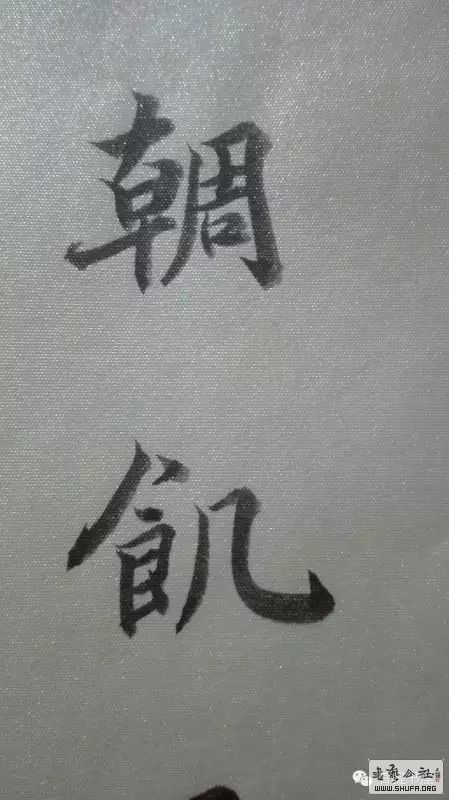 輖
飢
书艺公社
WWW.SHUFA.ORG